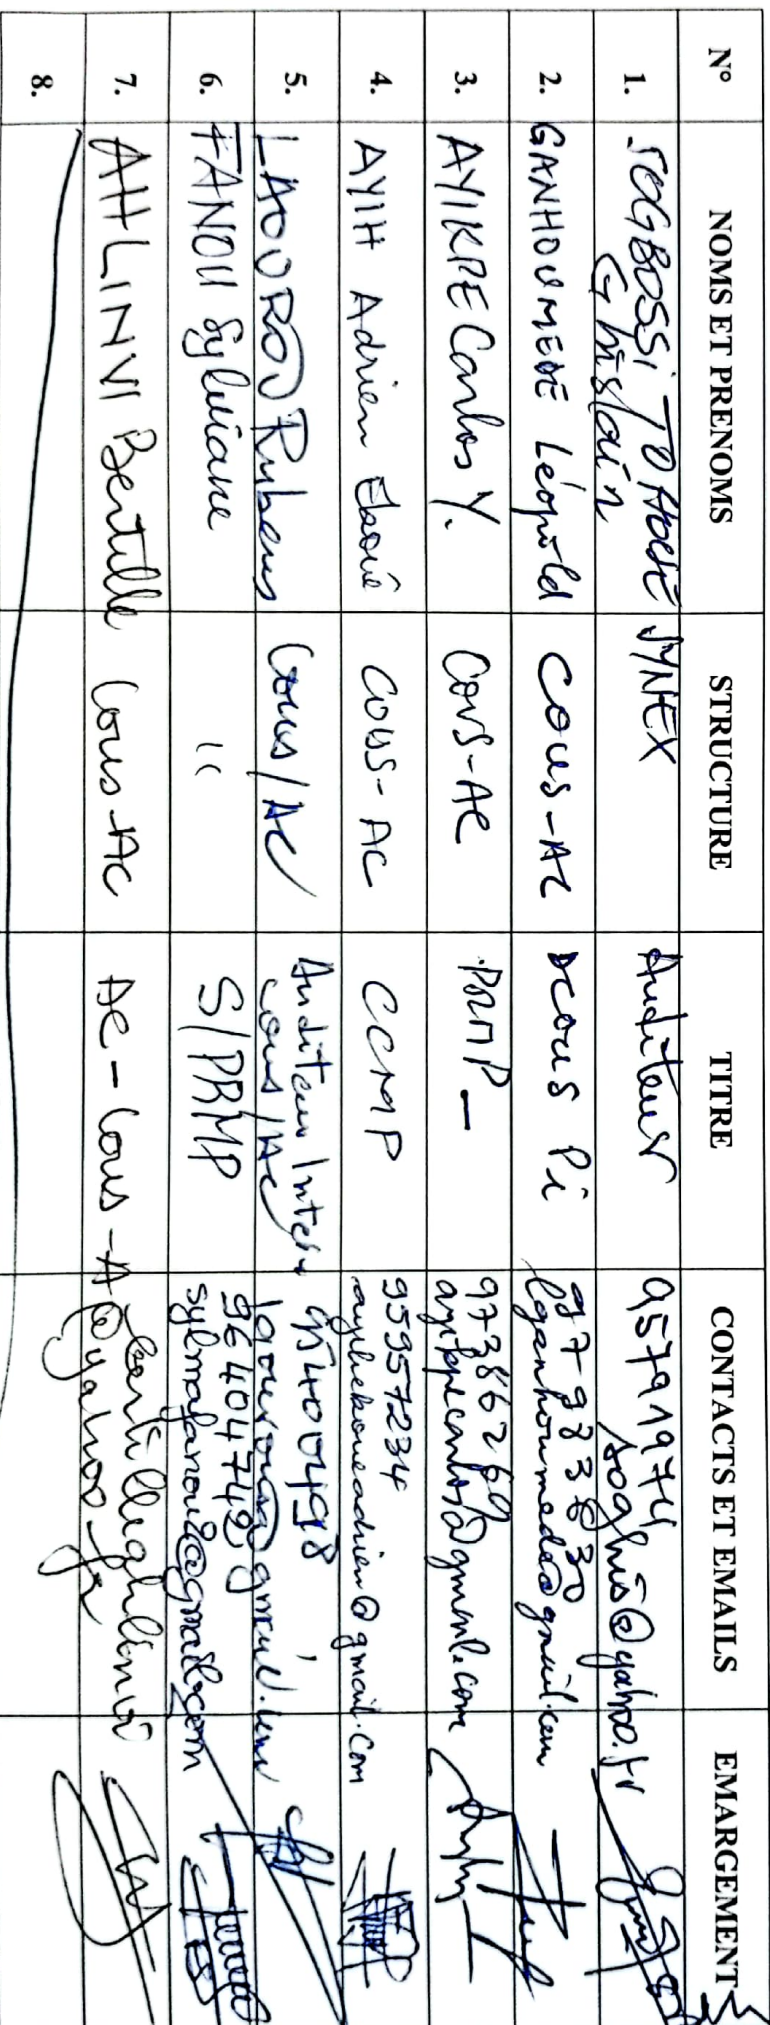 N° NOMS ET PRENOMS STRUCTURE TITRE CONTACTS ET EMAILS EMARGEMENT
1. SOGBOSSI TOHOUE Ghislain SYNEX Auditeur 95791974 soghis@yahoo.fr
2. GANHOUMEDE Léopold COUS-AC DCOUS Pi 97983630 lganhoumede@gmail.com
3. AYIKPE Carlos Y. COUS-AC PRMP 97386269 ayikpecarlos@gmail.com
4. AYIH Adrien Ekoué COUS-AC CCMP 95957234 ayihekoueadrien@gmail.com
5. LAOUROU Rubens Cous/AC Auditeur Interne cous/AC 95400498
6. FANOU Sylviane " S/PRMP 96404742 sylmafanou2@gmail.com
7. AHLINVI Bertille Cous-AC AC-Cous-A @yahoo.fr
8.